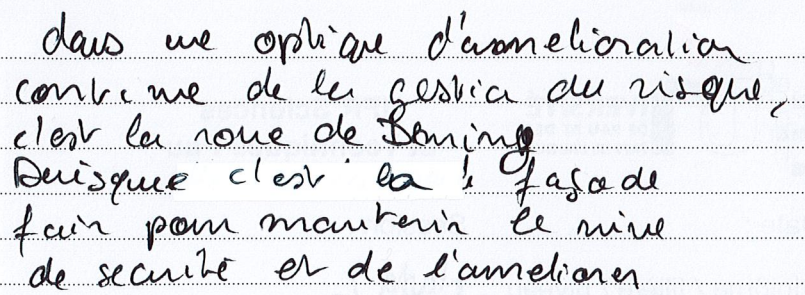 dans une optique d'amelioration
continue de la gestion du risque,
c'est la roue de Deming
Puisque c'est la ! façade
fair pour maintenir le nive
de securité et de l'ameliorer